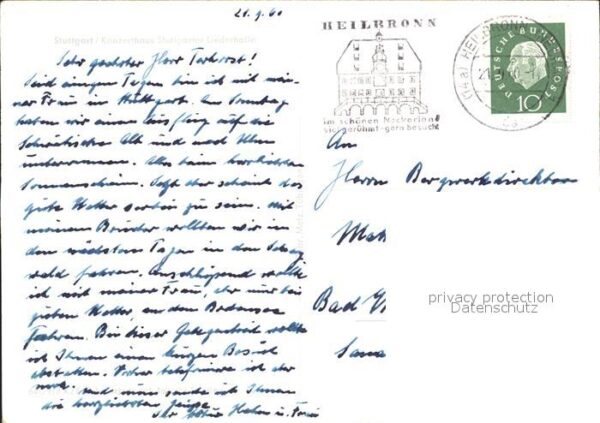 21.9.60
Stuttgart / Konzerthaus Stuttgarter Liederhalle
Sehr geehrter Herr Terhorst!
Seit einigen Tagen bin ich mit mei-
ner Frau in Stuttgart. Am Sonntag
haben wir einen Ausflug auf die
Schwäbische Alb und nach Ulm
unternommen. Alles beim herrlichsten
Sonnenschein. Jetzt aber scheint das
gute Wetter vorbei zu sein. Mit
meinem Bruder wollten wir in
den nächsten Tagen in den Schwarz
wald fahren. Anschließend wollte
ich mit meiner Frau, aber nur bei
gutem Wetter, an den Bodensee
fahren. Bei dieser Gelegenheit wollte
ich Ihnen einen kurzen Besuch
abstatten. Vorher telefoniere ich aber
noch. Und nun sende ich Ihnen
die herzlichsten Grüsse
Ihr u. Frau
HEILBRONN
im schönen Neckarland
vielgerühmt-gern besucht
HEILBRONN
DEUTSCHE BUNDESPOST
10
An
Herrn Bergwerksdirektor
Bad
privacy protection
Datenschutz